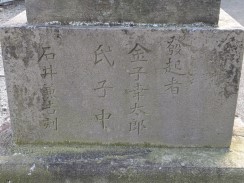 發起者
金子幸太郎
氏子中
石井